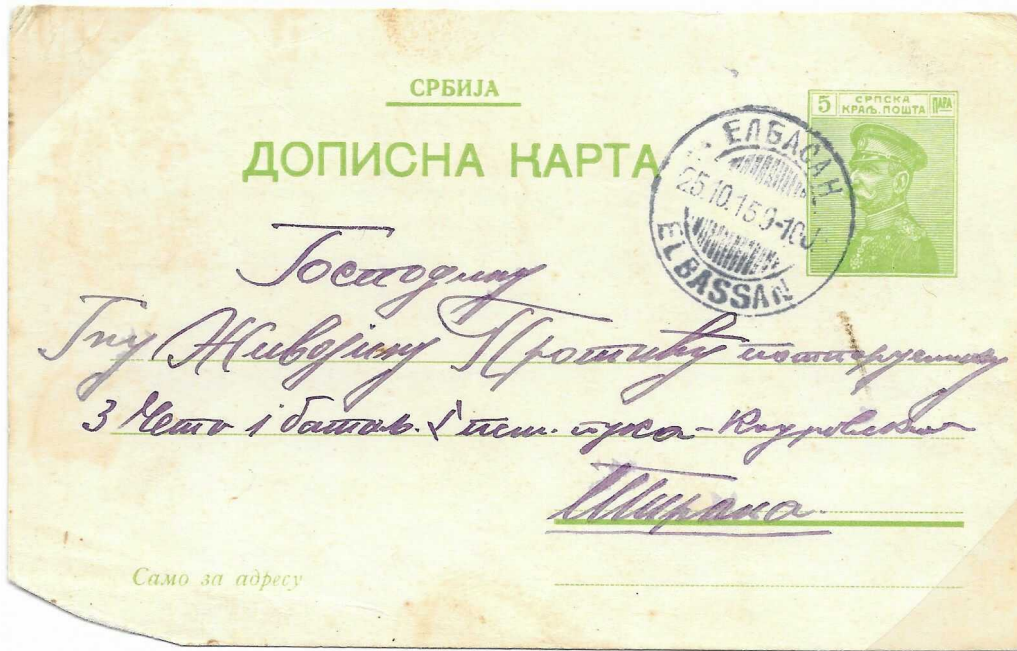 СРБИЈА
ДОПИСНА КАРТА
5 СРПСКА КРАЉ. ПОШТА ПАРА
ЕЛБАСАН
25.10.15 9-10
ELBASSAN
Господину
Гну Живојину Протићу
3 чете 1 батаљ. пука
Тирана
Само за адресу